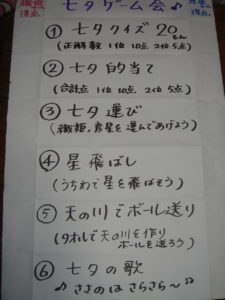 七夕ゲーム会♪
織姫
得点
得点
① 七夕クイズ 20もん
(正解数 1位 10点. 2位 5点)
② 七夕的当て
(合計点 1位 10点. 2位 5点)
③ 七夕運び
(織姫、彦星を運んであげよう)
④ 星飛ばし
(うちわで星を飛ばそう)
⑤ 天の川でボール送り
(タオルで天の川を作り
ボールを送ろう)
⑥ 七夕の歌
♪ ささのは さらさら〜♪